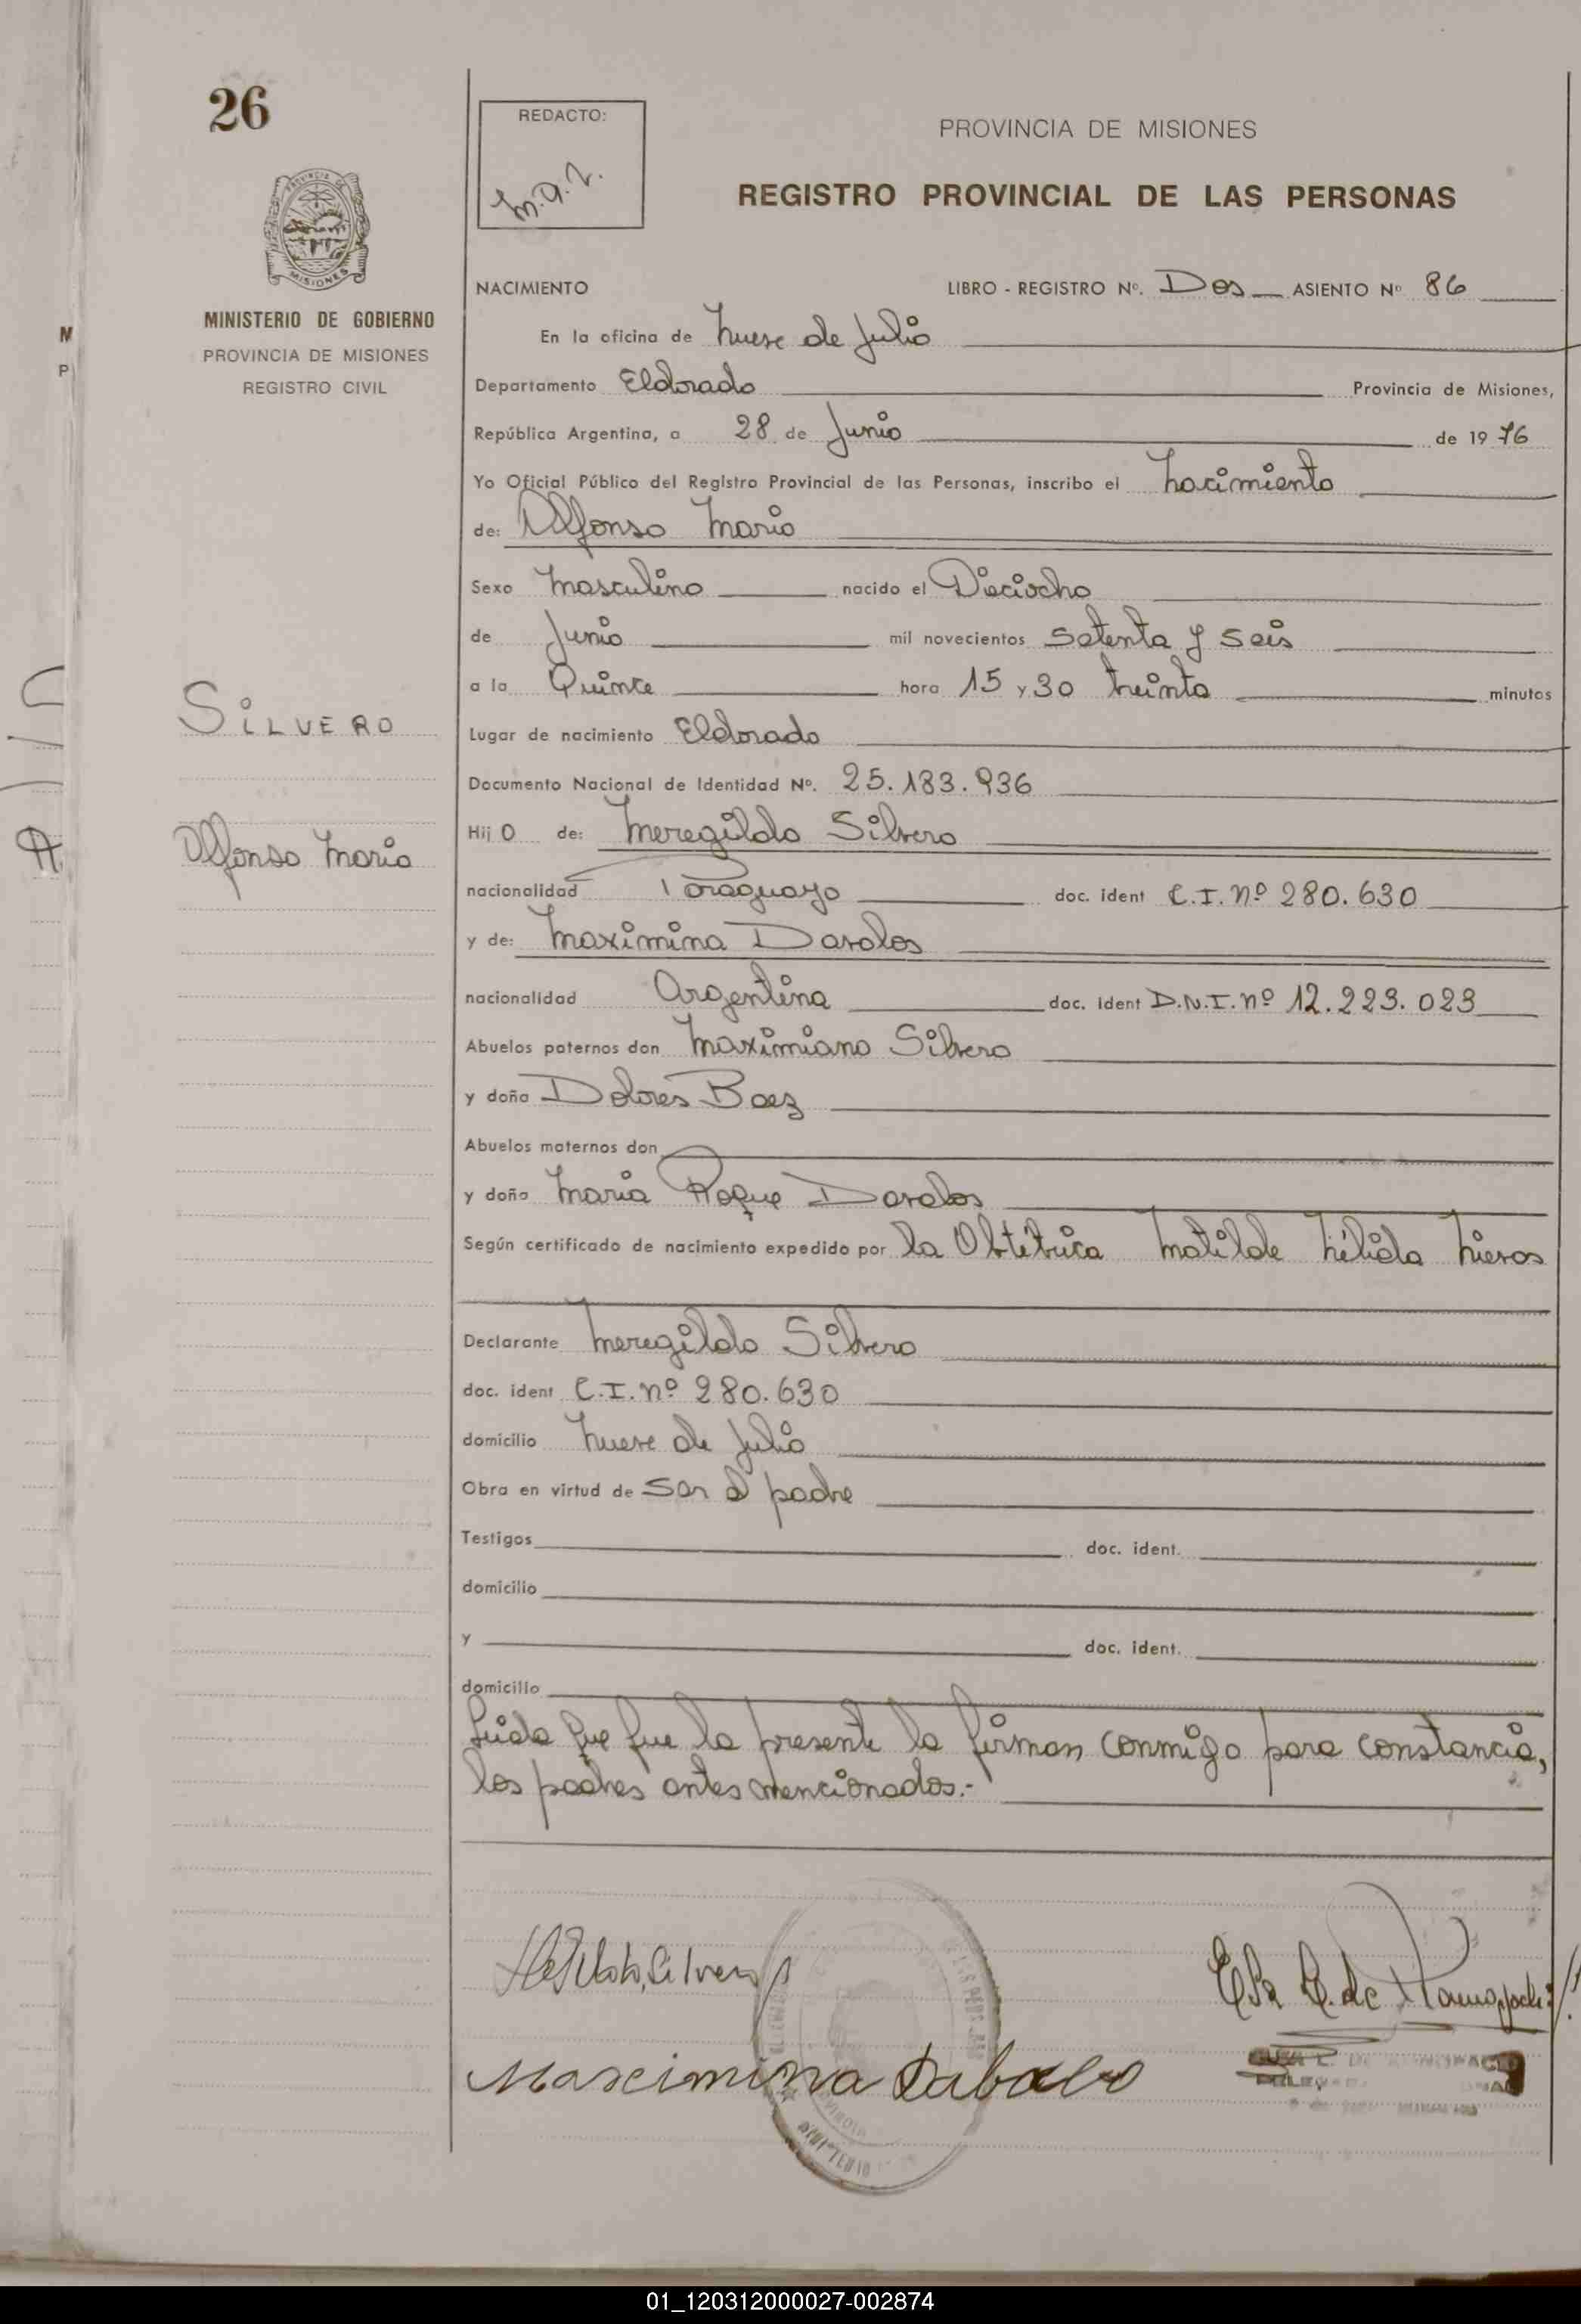 26
REDACTO:
PROVINCIA DE MISIONES
REGISTRO PROVINCIAL DE LAS PERSONAS
PROVINCIA DE
MISIONES
MINISTERIO DE GOBIERNO
PROVINCIA DE MISIONES
REGISTRO CIVIL
M
P
NACIMIENTO LIBRO - REGISTRO Nº. Dos ASIENTO Nº 86
En la oficina de Nueve de Julio
Departamento Eldorado Provincia de Misiones,
República Argentina, a 28 de Junio de 1976
Yo Oficial Público del Registro Provincial de las Personas, inscribo el Nacimiento
de: Alfonso Mario
Sexo Masculino nacido el Dieciocho
de Junio mil novecientos setenta y seis
a la Quince hora 15 y 30 treinta minutos
SILVERO
Lugar de nacimiento Eldorado
Documento Nacional de Identidad Nº. 25.183.936
Alfonso Mario
Hijo de: Meregildo Silvero
nacionalidad Paraguayo doc. ident C.I. Nº 280.630
y de: Maximina Davalos
nacionalidad Argentina doc. ident D.N.I. nº 12.223.023
Abuelos paternos don Maximiano Silvero
y doña Dolores Baez
Abuelos maternos don
y doña Maria Roque Davalos
Según certificado de nacimiento expedido por la Obtétrica Matilde Nélida
Declarante Meregildo Silvero
doc. ident C.I. nº 280.630
domicilio Nueve de Julio
Obra en virtud de ser el padre
Testigos doc. ident.
domicilio
y doc. ident.
domicilio
Leida que fue la presente la firman conmigo para constancia,
los padres antes mencionados.-
Silvero
Marcimina Dabalo
01_120312000027-002874